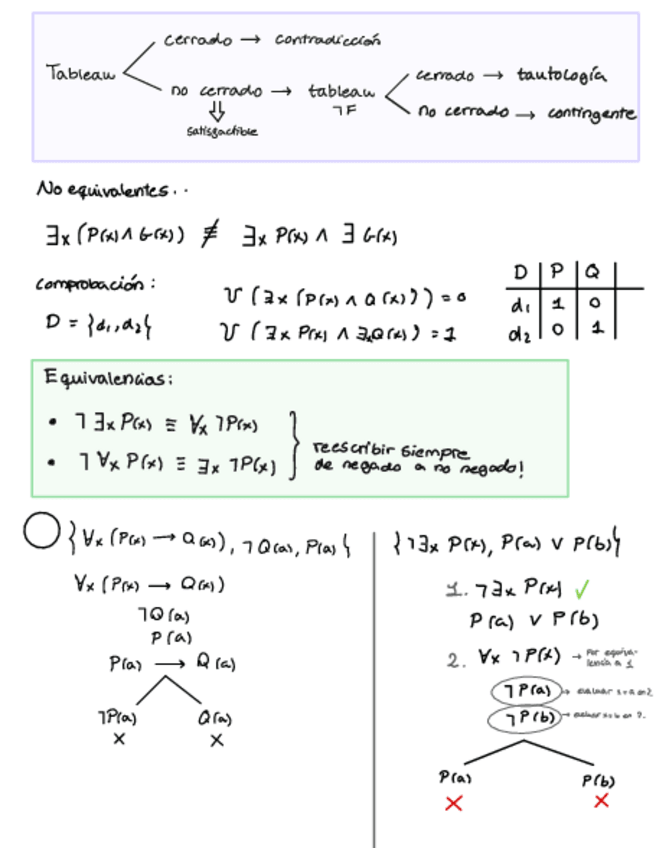 cerrado → contradicción
Tableau
no cerrado → tableau
¬F
cerrado → tautología
no cerrado → contingente
⇓
satisfactible
No equivalentes..
∃x (P(x) ∧ G(x)) ≢ ∃x P(x) ∧ ∃ G(x)
Comprobación:
D = {d₁, d₂}
V (∃x (P(x) ∧ Q(x))) = 0
V (∃x P(x) ∧ ∃xQ(x)) = 1
D P Q
d₁ 1 0
d₂ 0 1
Equivalencias:
• ¬∃x P(x) ≡ ∀x ¬P(x)
• ¬∀x P(x) ≡ ∃x ¬P(x)
reescribir siempre
de negado a no negado!
{∀x (P(x) → Q(x)), ¬Q(a), P(a)}
∀x (P(x) → Q(x))
¬Q(a)
P(a)
P(a) → Q(a)
¬P(a) Q(a)
× ×
{¬∃x P(x), P(a) ∨ P(b)}
1. ¬∃x P(x) ✓
P(a) ∨ P(b)
2. ∀x ¬P(x) → Por equiva-
lencia a 1
¬P(a) → evaluar x=a en 2.
¬P(b) → evaluar x=b en 2.
P(a) P(b)
× ×